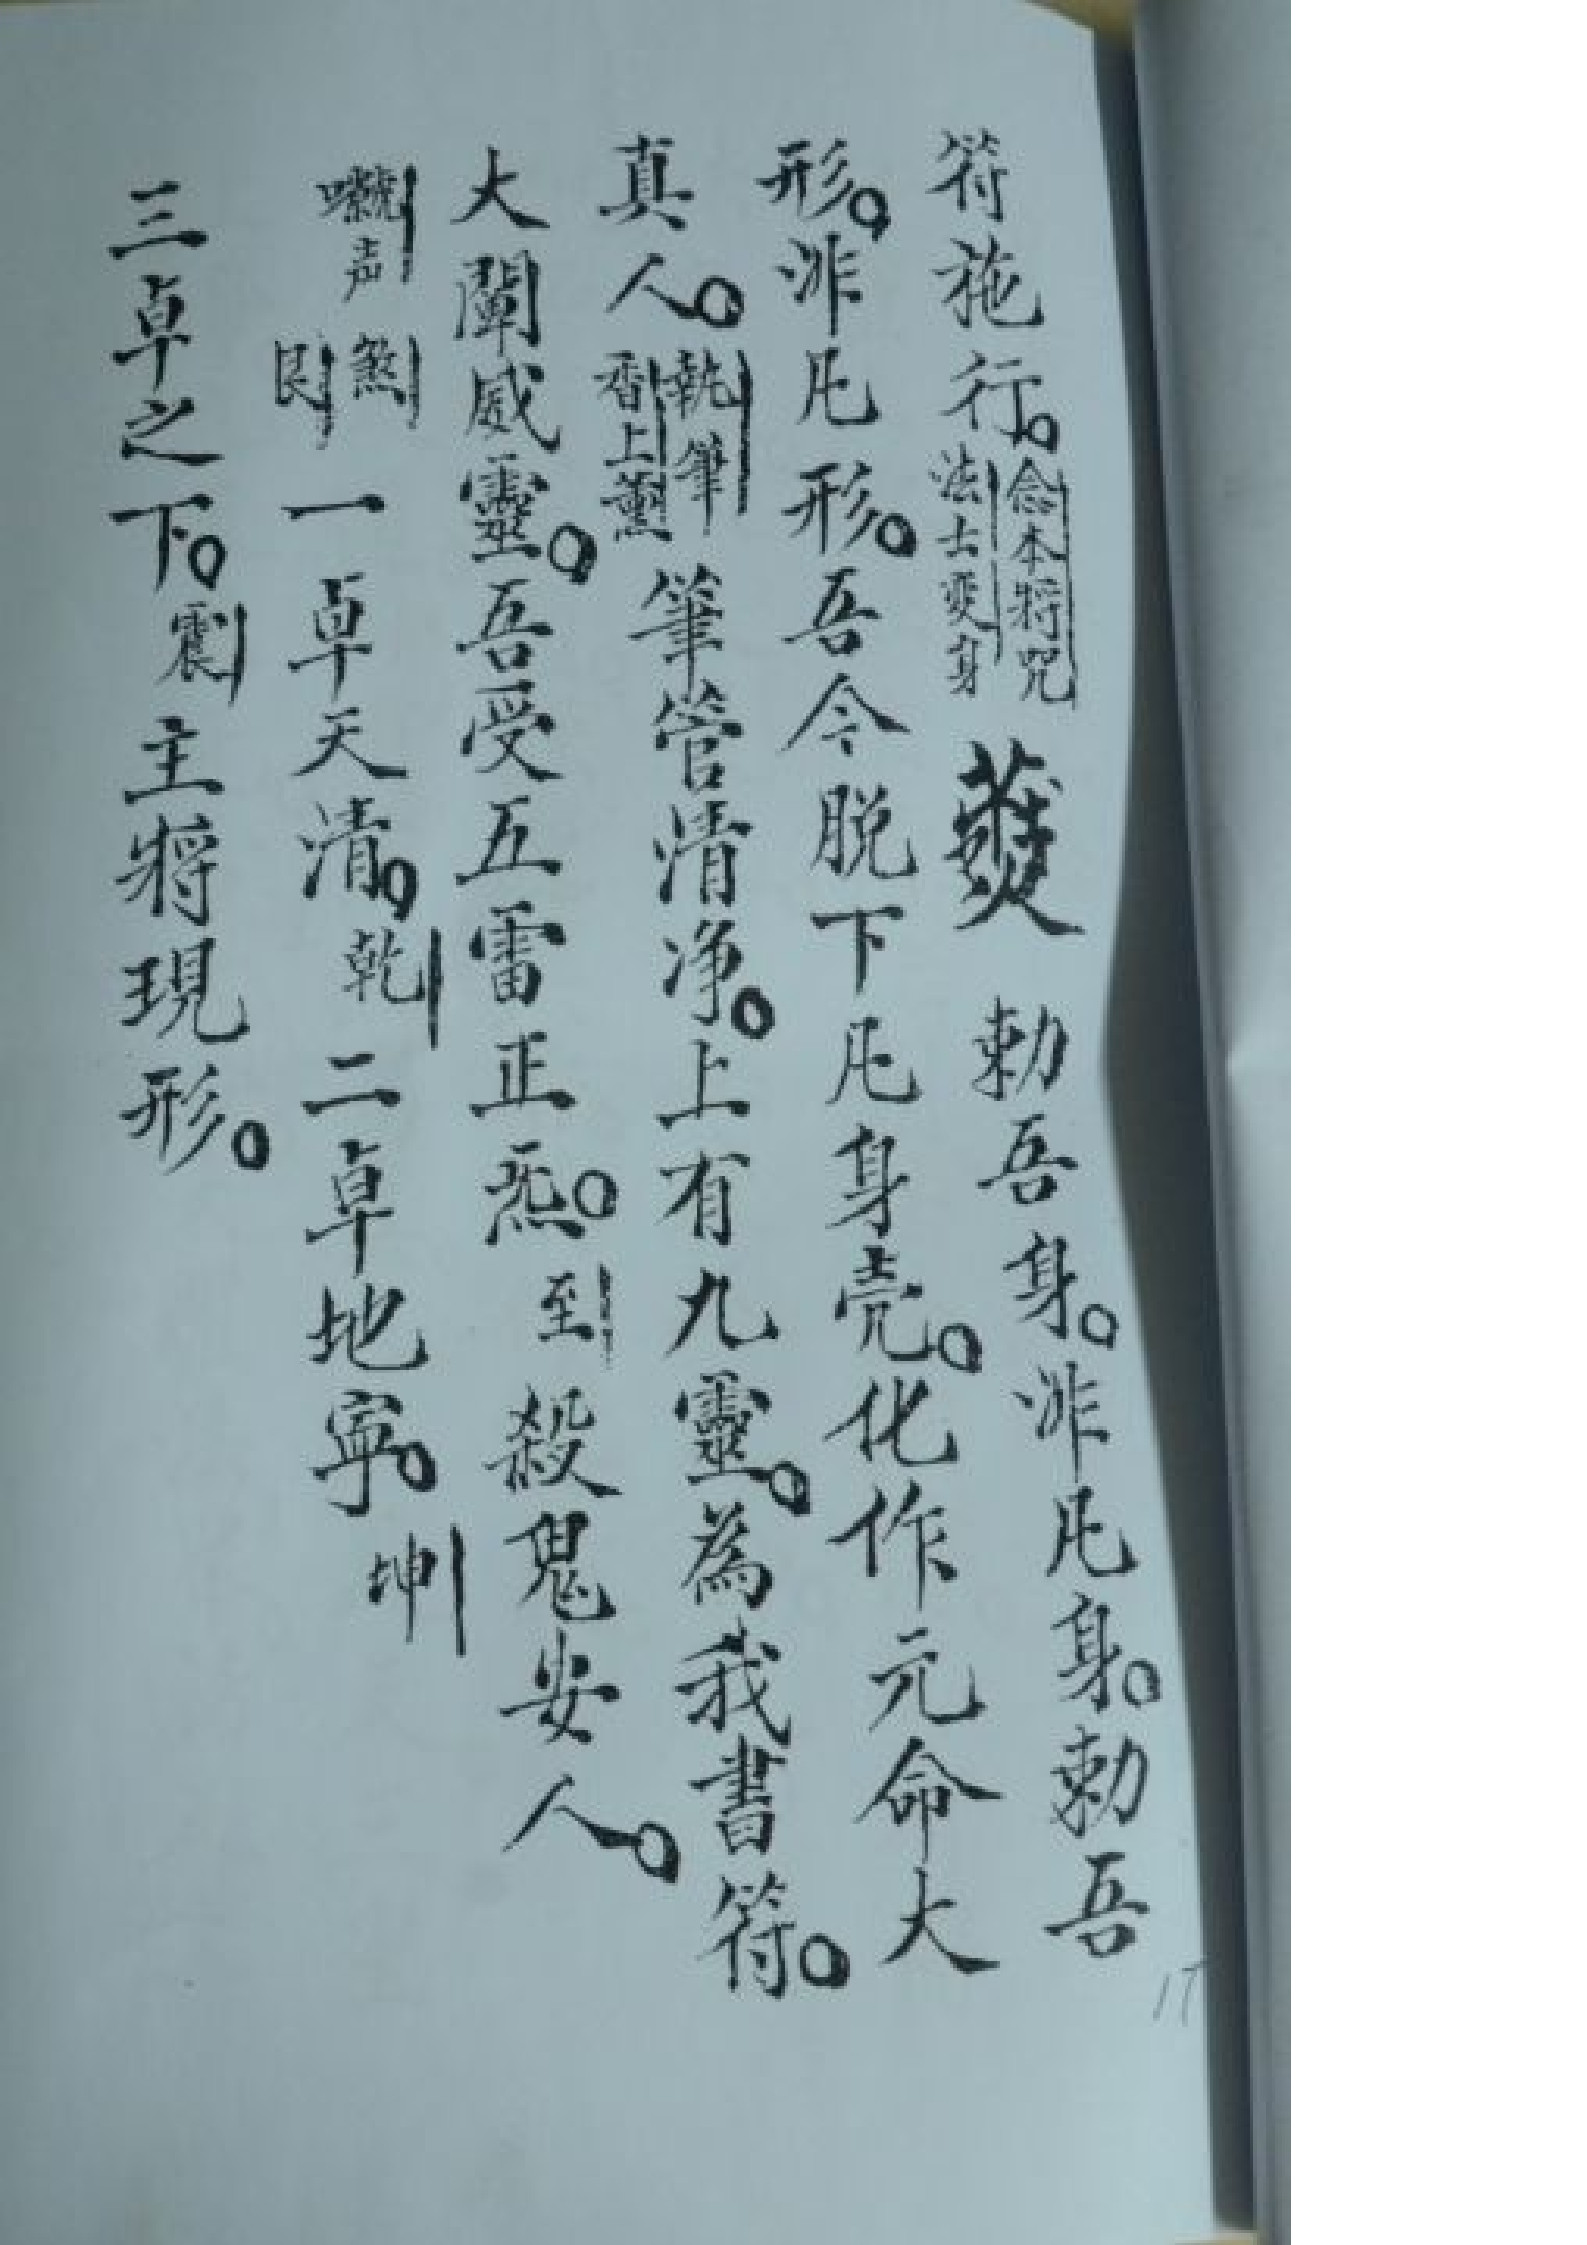 符施行。念本將咒法士变身 勅吾身。非凡身。勅吾
形。非凡形。吾今脱下凡身壳。化作元命大
真人。執筆香上薰 筆管清净。上有九靈。為我書符。
大闡威靈。吾受五雷正炁。至 殺鬼安人。
声 煞 艮 一卓天清。乾 二卓地寧。坤
三卓之下。震 主將現形。
17